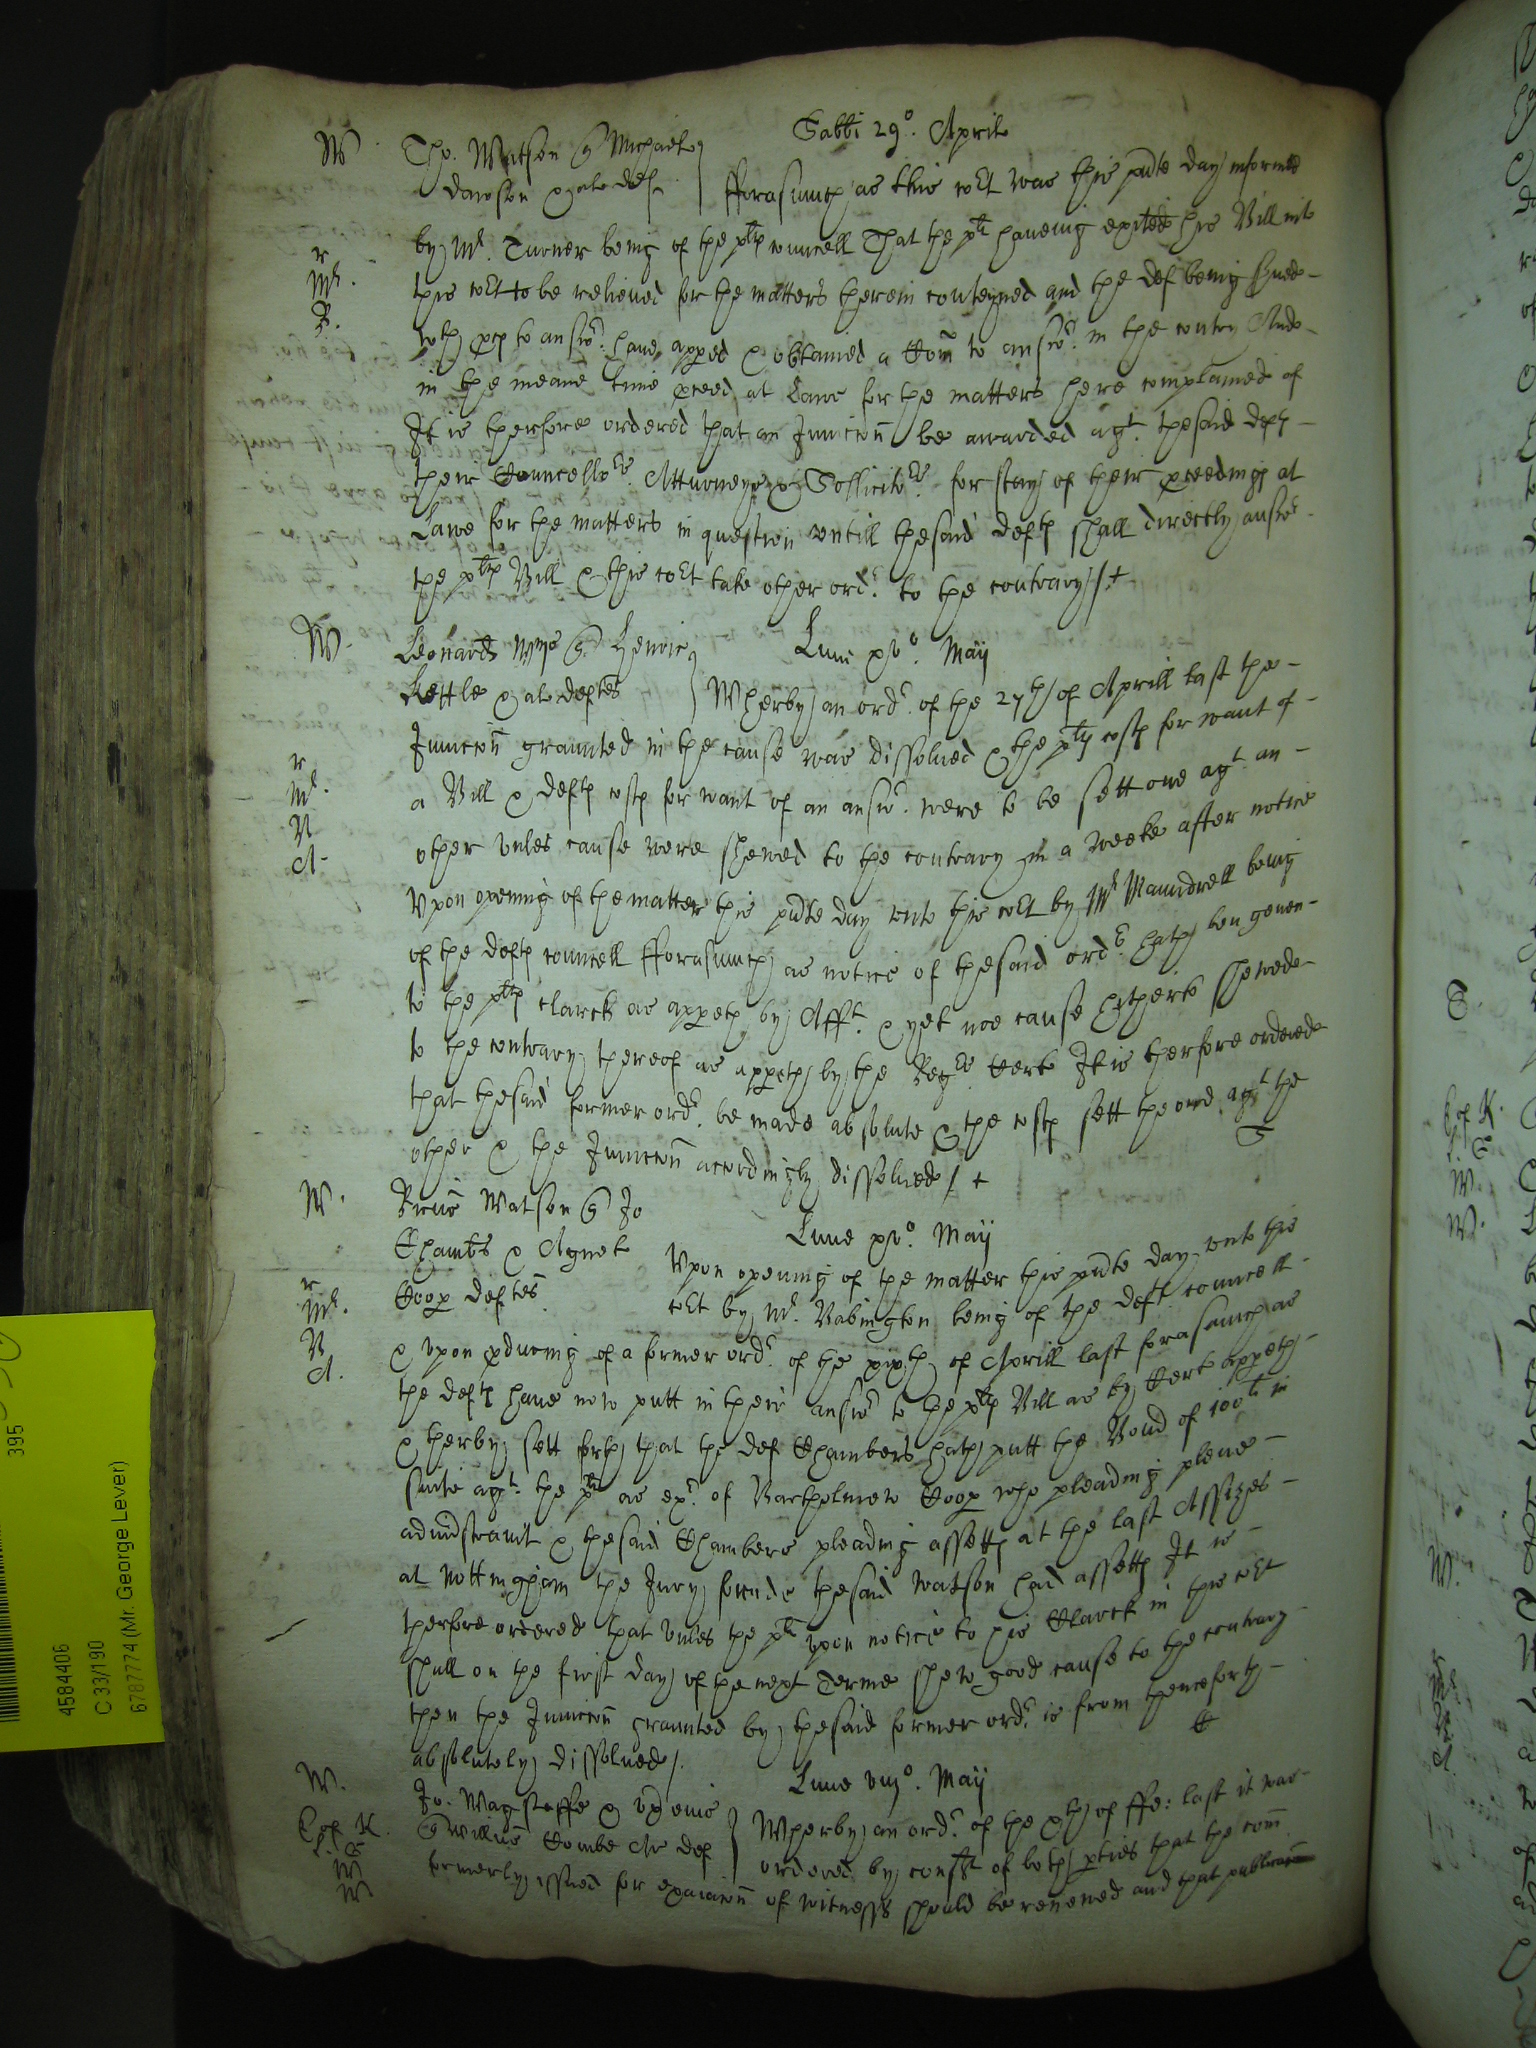 Sabbti 29o. Aprile
W Tho. Watson & Michaell
Dawson & al def fforasmuch as this cort was this pnte day informed
by Mr. Turner being of the pltes councell That the plt haveing exited his Bill into
this cort to be relieved for the matters therein conteyned and the def being served
wth proces to answr. have apped & obtained a Com to answr. in the contry And
in the meane time pceed at Lawe for the matters here complained of
It is therfore ordered that an Iniunction be awarded agt. thesaid defts
their Councellors. Atturneyes & Sollicitrs. for stay of their pceedings at
Lawe for the matters in question untill thesaid defts shall directly answr
the pltes Bill & this cort take other ordr. to the contrary /+
r
Mr.
R.
W. Leonard Wms & Henrie Lune xvo. Maij
Kettle & al deftes Wherby an ordr. of the 27th of Aprill last the
Iniunction graunted in the cause was dissolved & the plts costs for want of
a Bill & defts costs for want of an answr. were to be sett one agt. an
other unles cause were shewed to the contrary in a weeke after notice
Upon opening of the matter this pnte day unto this cort by Mr Maundrell being
of the defts councell fforasmuch as notice of thesaid ordr. hath ben geven
to the pltes clarck as appeth by Afft. & yet noe cause hitherto shewed
to the contrary thereof as appeth by the Regrs Certe It is therfore ordered
that thesaid former ordr. be made absolute & the costs sett the one agt the
other & the Iniunction accordingly dissolved / +
r
Mr.
B
A.
W. Watson & Jo Lune xvo. Maij
Chambs & Agnet Upon opening of the matter this pnte day unto this
Coop deftes cort by Mr. Babington being of the deft councell
& upon pducing of a former ordr. of the xixth of Aprill last forasmuch as
the defts have now putt in their answr to the plts Bill as by Certe appeth
& therby sett forth that the def Chambers hath putt the Bond of 100li in
suite agt. the plt as exr. of Bartholmew Coop who pleading plene
adminstravit & thesaid Chambers pleading assetts at the last Assizes
at Nottingham the Jury founde thesaid Watson had assetts It is
therfore ordered that unles the plt upon notice to his Clarck in this cort
shall on the first day of the next Terme shew good cause to the contrary
then the Iniunction graunted by thesaid former ordr. is from thenceforth
absolutely dissolved /.
r
Mr.
B
A.
W. Jo. Wagstaffe & ux Lune viijo. Maij
& Willm Combe Ar def Wherby an ordr. of the xth of ffe: last it was
ordered by consent of both pties that the com
formerly issued for exaiacion of witnesss should be renewed and that publicacion
395
4584406
C 33/190
6787774 (Mr. George Lever)